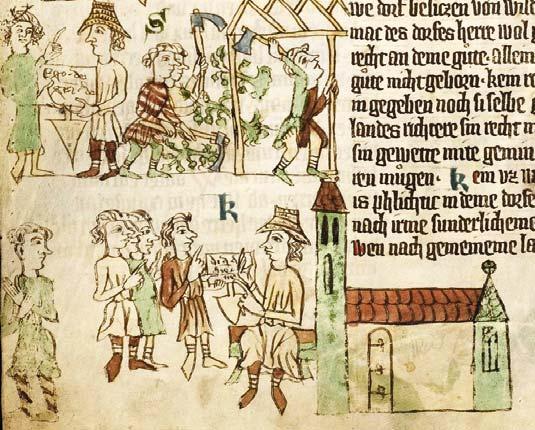 S
Ego dei
gra
k
we dorf besiczen von wild
mac des dorfes herre wol
recht an deme gůte. allem
gůte nicht geborn. kein re
in gegeben noch si selbe
landes richtere sin recht
sin gewette mite gemin
ren mugen. k ein uz w
is phlichtic in deme dorfe
nach irme sunderlicheme
wen nach gemeineme la